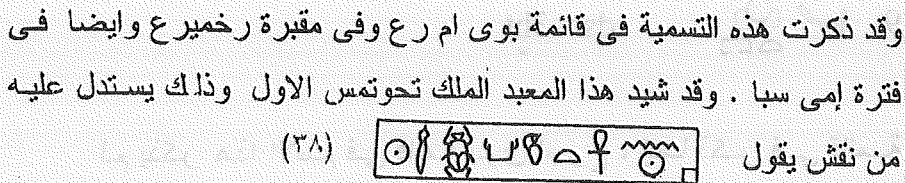 وقد ذكرت هذه التسمية فى قائمة بوى ام رع وفى مقبرة رخميرع وايضا فى
فترة إمى سبا . وقد شيد هذا المعبد الملك تحوتمس الاول وذلك يستدل عليه
من نقش يقول (٣٨)